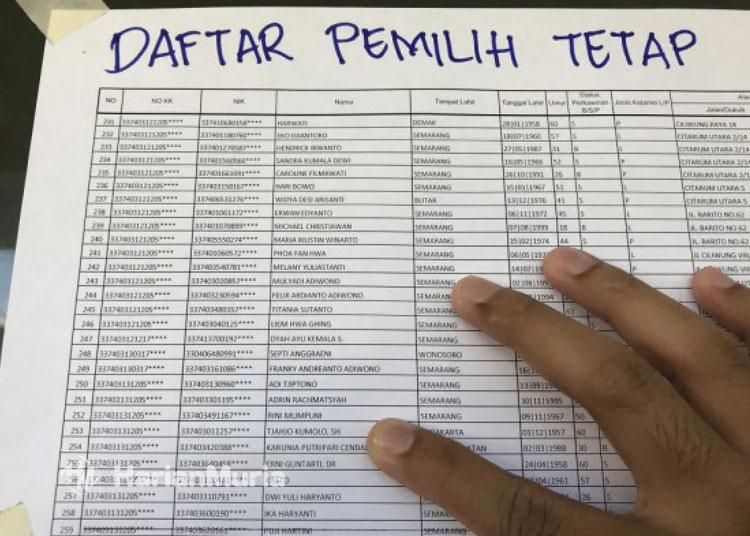 DAFTAR PEMILIH TETAP
NO NO KK NIK Nama Tempat Lahir Tanggal Lahir Umur Status Perkawinan B/S/P Jenis Kelamin L/P Jalan/Dukuh
231 337403121205**** 337410680158**** HARWATI DEMAK 28|01|1958 60 S P CILIWUNG RAYA 18
232 337403121205**** 337401180760**** EKO DJIANTOKO SEMARANG 18|07|1960 57 S L CITARUM UTARA 2/14
233 337403121205**** 337401270587**** HENDRICK IRWANTO SEMARANG 27|05|1987 31 B L CITARUM UTARA 2/14
234 337403121205**** 337401560566**** SANDRA KUMALA DEWI SEMARANG 16|05|1966 52 S P CITARUM UTARA 2/14
235 337403121205**** 337401661091**** CAROLINE FILMIRWATI SEMARANG 26|10|1991 26 B P CITARUM UTARA 2/14
236 337403121205**** 337403150167**** HARI BOWO SEMARANG 15|01|1967 51 S L CITARUM UTARA 5
237 337403121205**** 337406531276**** WIDYA DESI ARISANTI BLITAR 13|12|1976 41 S P CITARUM UTARA 5
238 337403121205**** 337401061172**** ERWAN EDYANTO SEMARANG 06|11|1972 45 S L JL. BARITO NO.62
239 337403121205**** 337401070899**** MICHAEL CHRISTIAWAN SEMARANG 07|08|1999 18 B L JL. BARITO NO.62
240 337403121205**** 337405550274**** MARIA RIUSTIN WINARTO SEMARANG 15|02|1974 44 S P JL. BARITO NO.62
241 337403121205**** 337401060572**** PHOA FAN HWA SEMARANG 06|05| L JL CILIWUNG
242 337403121205**** 337403540781**** MELANY YULIASTANTI SEMARANG 14|07| P
243 337403121205**** 337403020857**** MULYADI ADIWONO SEMARANG 02|08|
244 337403121205**** 337403230594**** FELIX ARDIANTO ADIWONO SEMARANG 1994
245 337403121205**** 337403480357**** TITANIA SUTANTO SEMARANG
246 337403121205**** 337403040125**** LIEM HWA GHING SEMARANG S
247 337403121217**** 337413700192**** DYAH AYU KEMALA S. SEMARANG
248 337403130317**** 330406480991**** SEPTI ANGGRAENI WONOSOBO
249 337403130317**** 337403161086**** FRANKY ANDREANTO ADIWONO SEMARANG 16|
250 337403131205**** 337403130960**** ADI TJIPTONO SEMARANG 13|09|
251 337403131205**** 337403301195**** ADRIN RACHMATSYAH SEMARANG 30|11|1995
252 337403131205**** 337403491167**** RINI MUMPUNI SEMARANG 09|11|1967 50
253 337403131205**** 337403011257**** TJAHJO KUMOLO, SH 01|12|1957 60
254 337403131205**** 337403420388**** KARUNIA PUTRIPARI 02|03|1988 30 B
255 ERNI GUNTARTI, DR 24|04|1958 60 S
|1961 57 S
257 337403131205**** 337403310791**** DWI YULI HARYANTO 26 S
258 337403131205**** 337403600190**** IKA HARYANTI
259 337403131205**** 337403620161**** PUJI HARTINI
Harian Muria